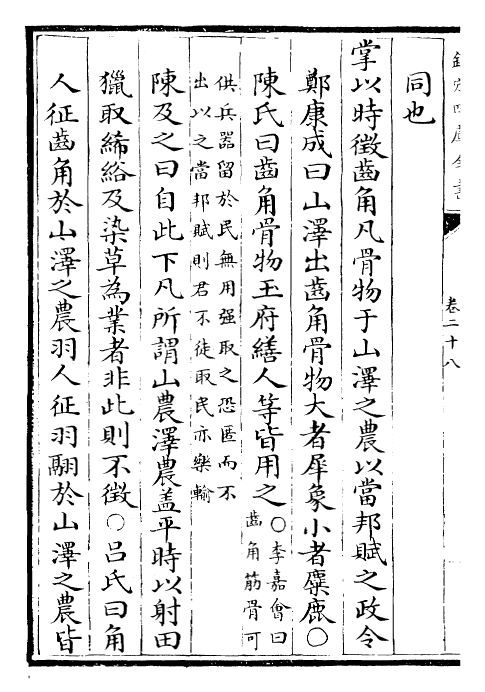 欽定四庫全書
卷二十八
同也
掌以時徵齒角凡骨物于山澤之農以當邦賦之政令
鄭康成曰山澤出齒角骨物大者犀象小者麋鹿〇
陳氏曰齒角骨物玉府繕人等皆用之〇李嘉會曰
齒角筋骨可
供兵器留於民無用强取之恐匿而不
出以之當邦賦則君不徒取民亦樂輸
陳及之曰自此下凡所謂山農澤農盖平時以射田
獵取絺綌及染草為業者非此則不徵〇呂氏曰角
人征齒角於山澤之農羽人征羽翮於山澤之農皆